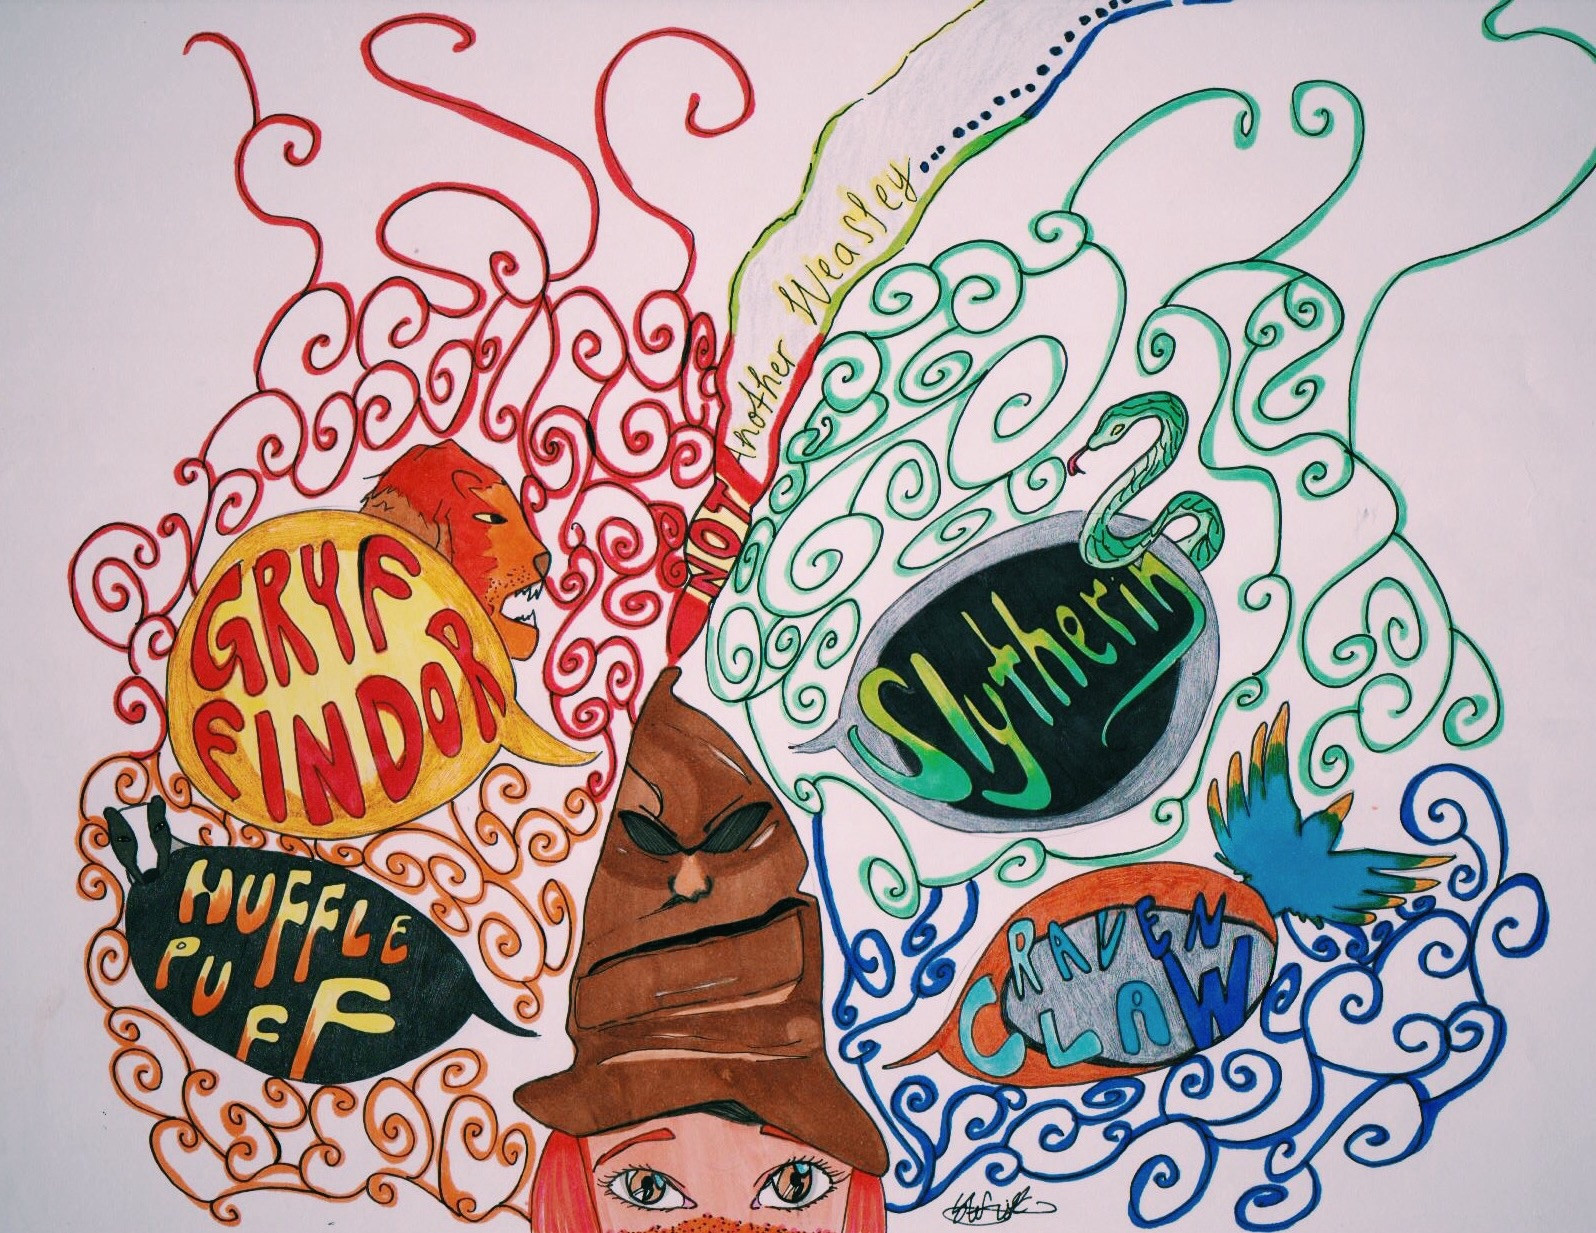 NOT Another Weasley........
GRYF
FINDOR
Slytherin
HUFFLE
PUFF
RAVEN
CLAW